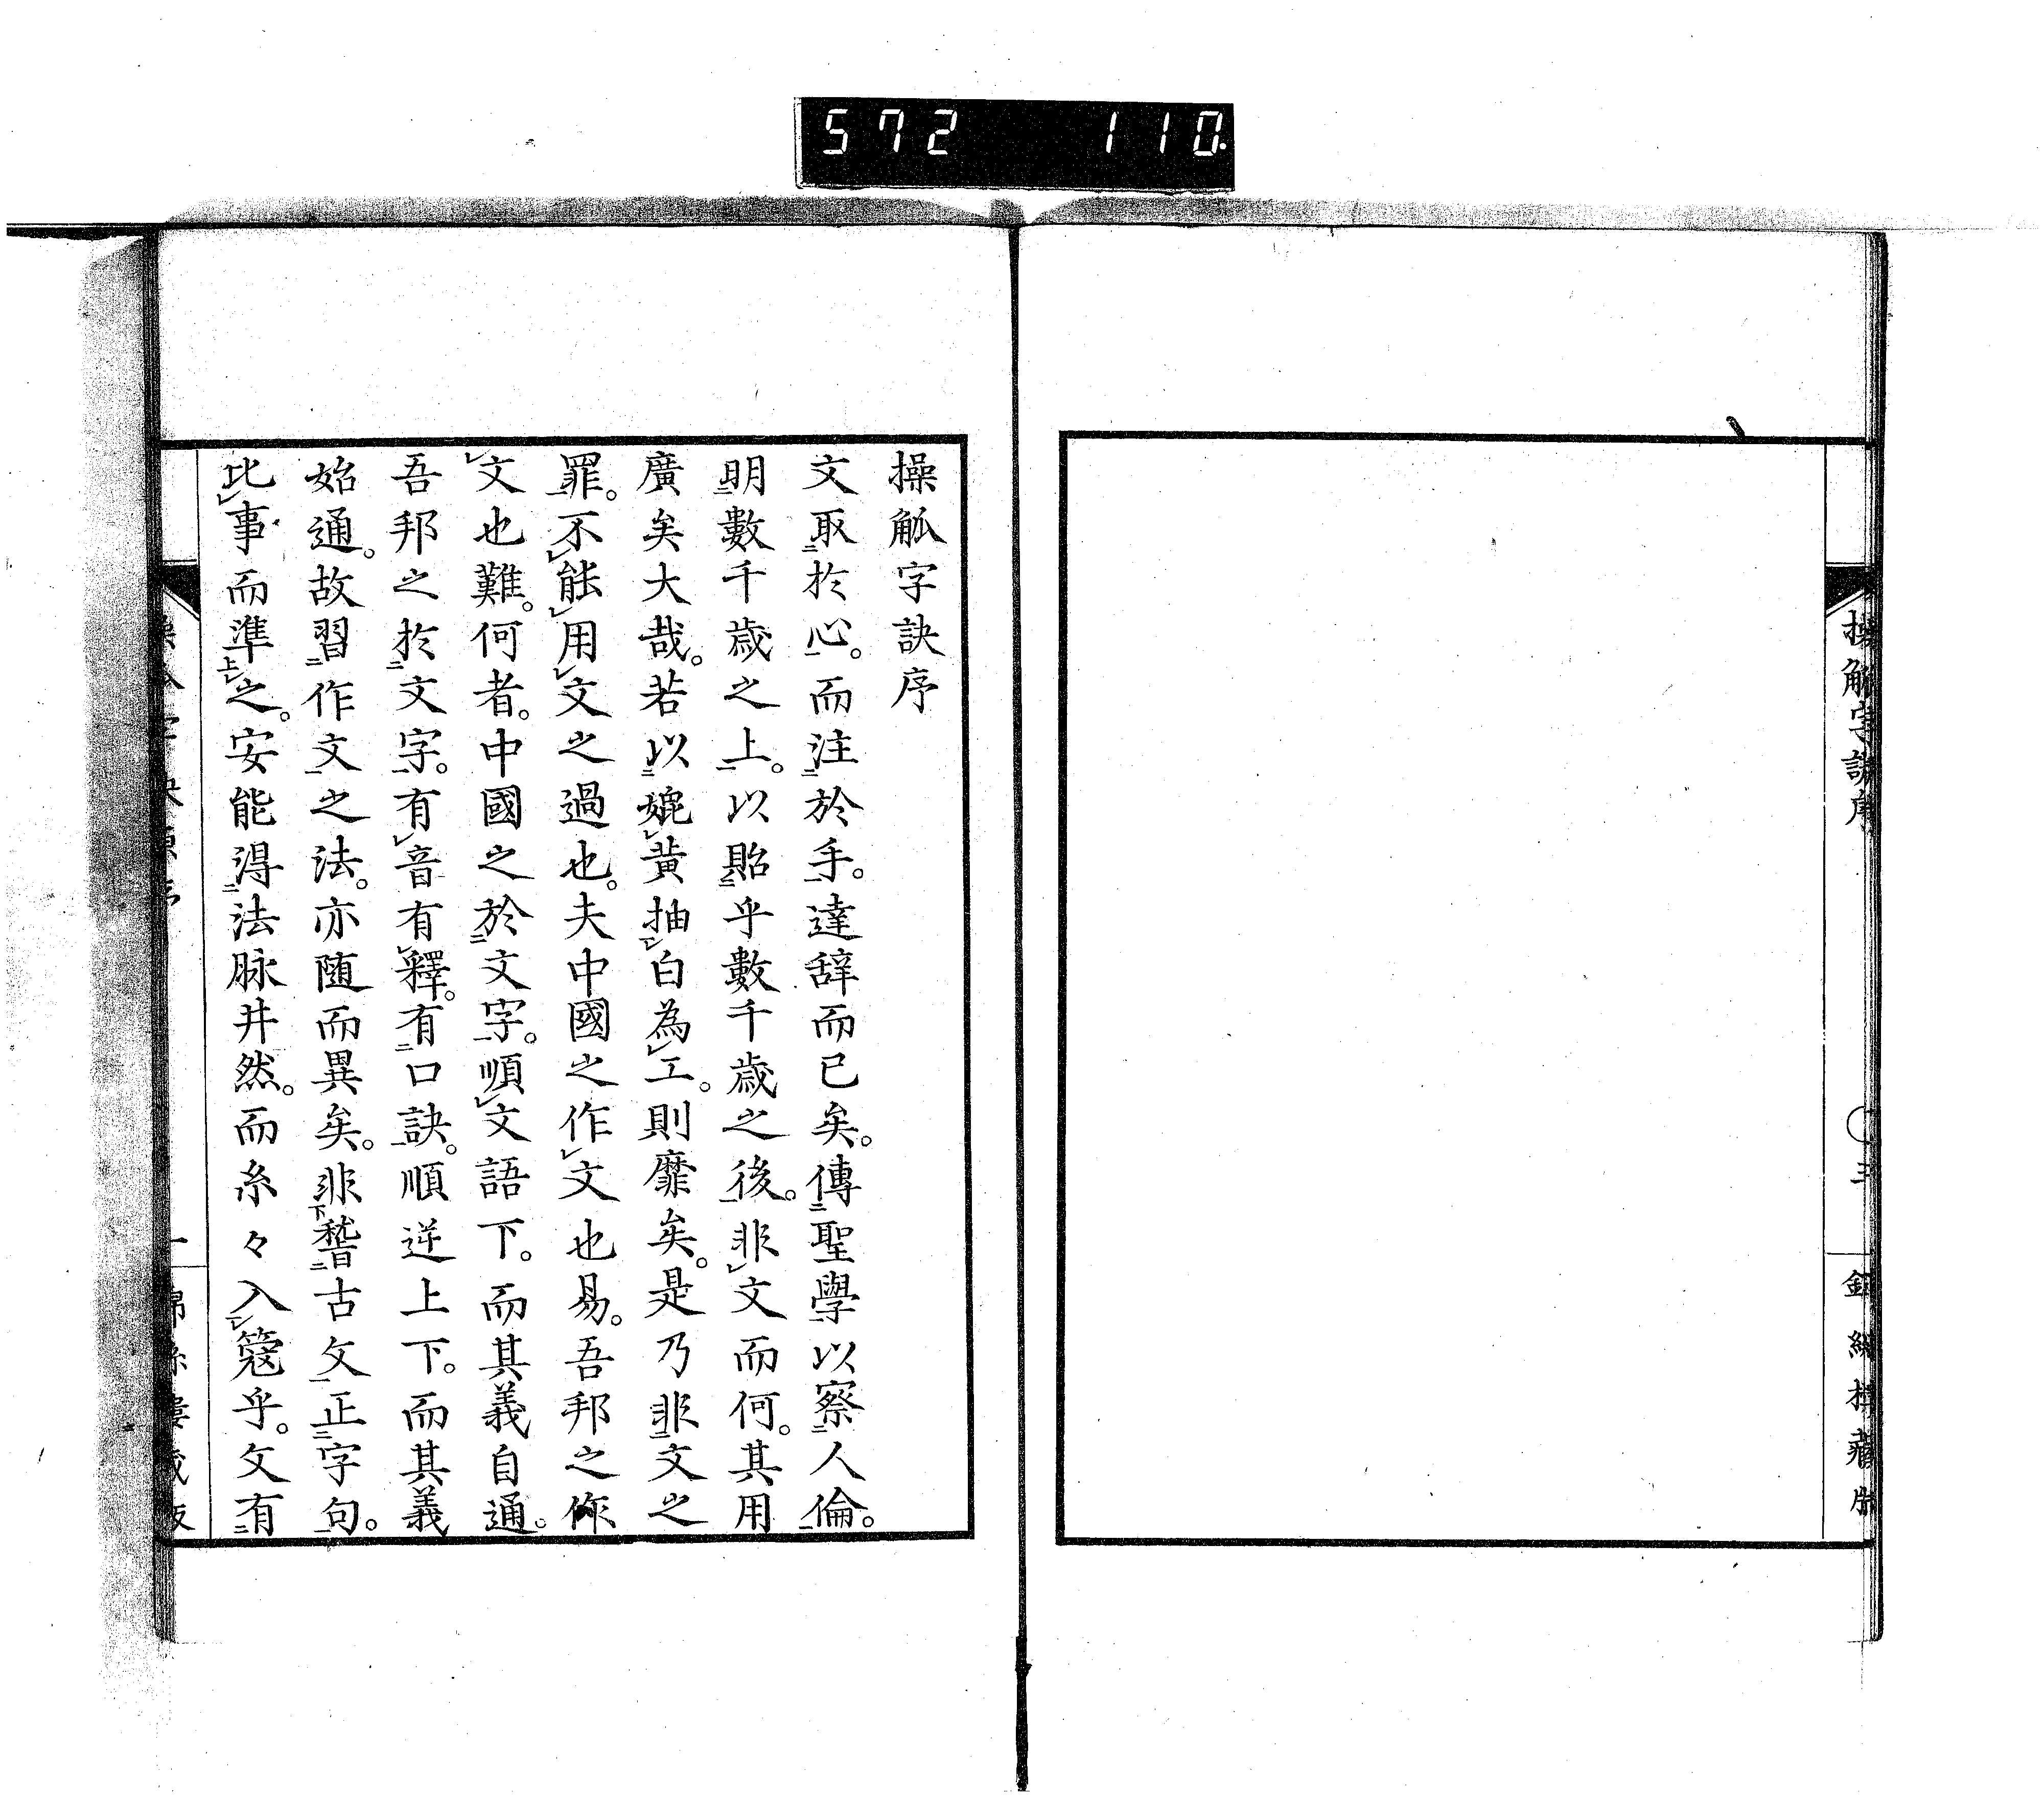 572 110
操觚字訣序
三
操觚字訣序
文取於心。而注於手。達辞而已矣。傳聖學以察人倫。
明數千歳之上。以貽乎數千歳之後。非文而何。其用
廣矣大哉。若以媲黃抽白為工。則靡矣。是乃非文之
罪。不能用文之過也。夫中國之作文也易。吾邦之作
文也難。何者。中國之於文字。順文語下。而其義自通。
吾邦之於文字。有音有釋。有口訣。順逆上下。而其義
始通。故習作文之法。亦随而異矣。非稽古文正字句。
比事而準之。安能得法脉井然。而糸々入篾乎。文有